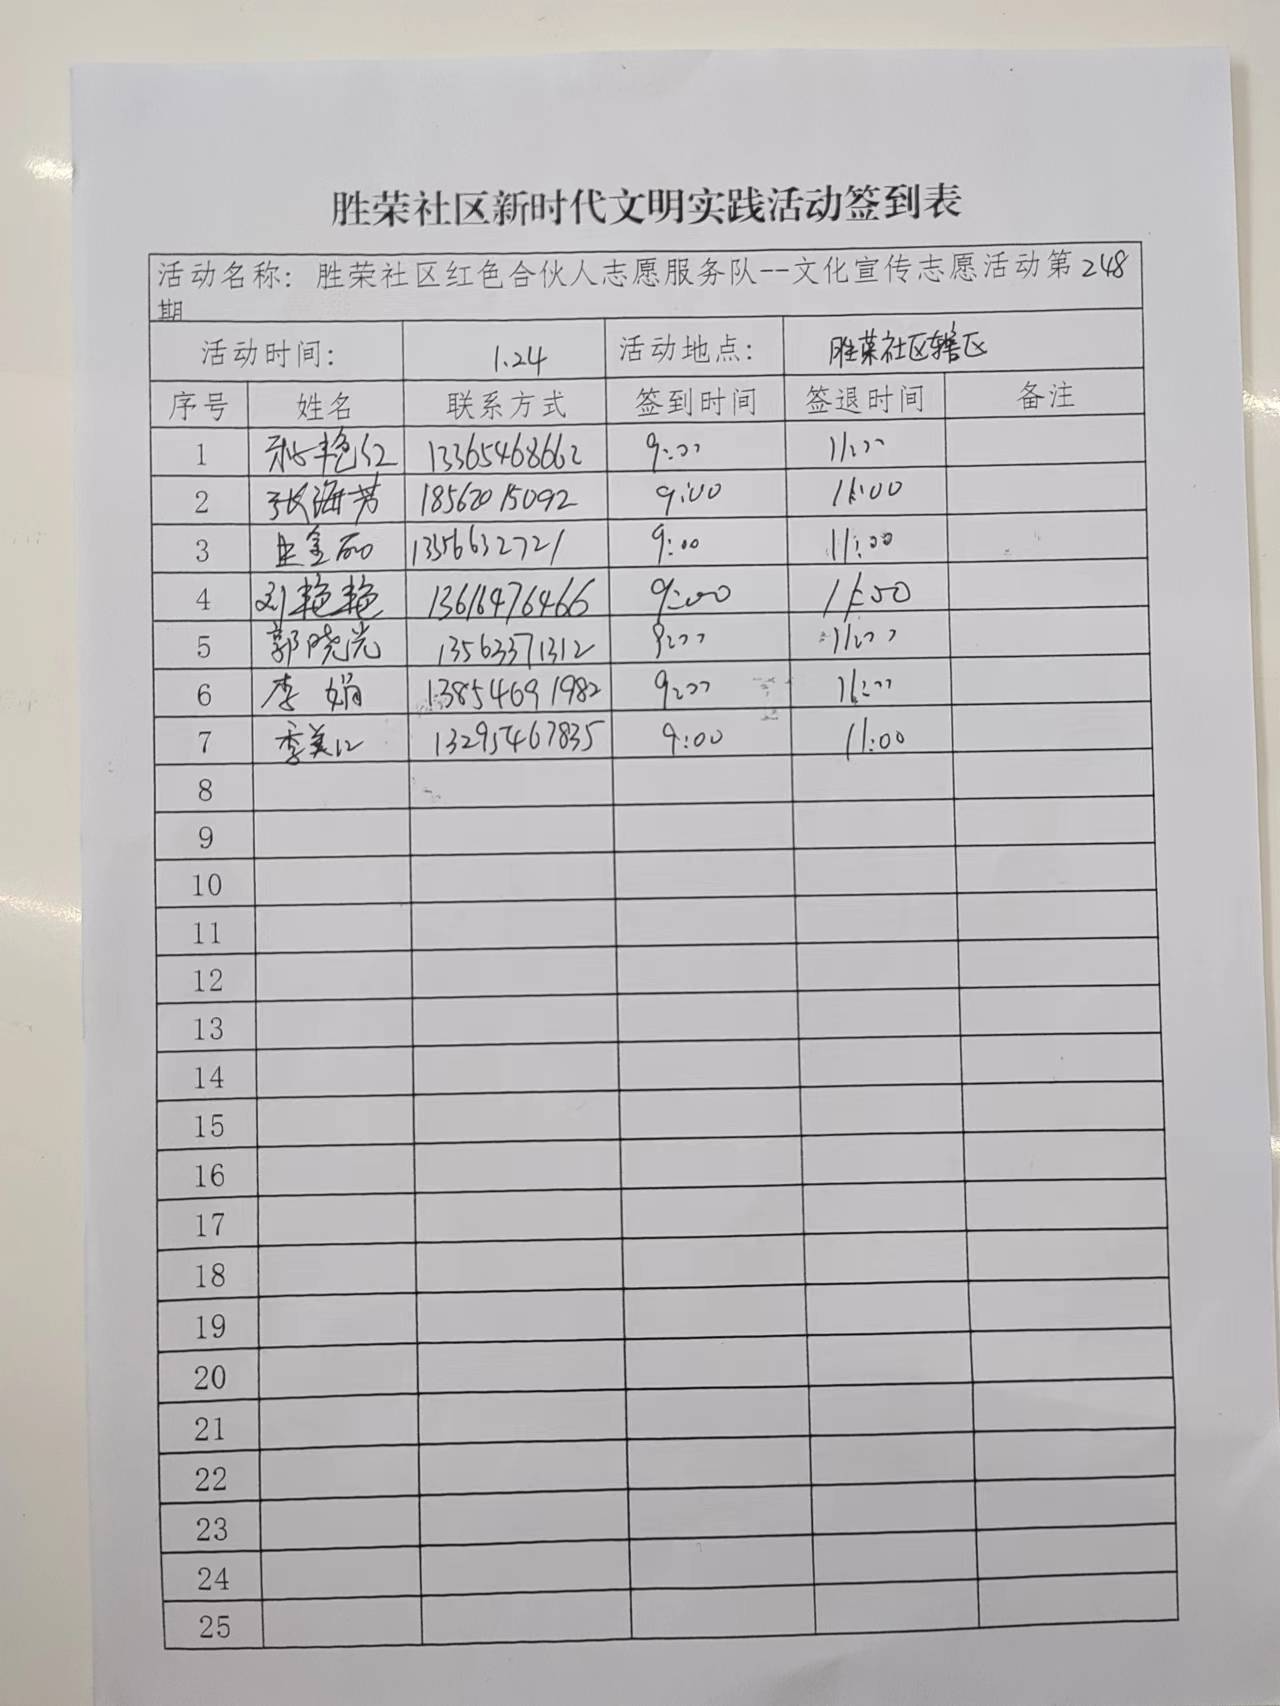 胜荣社区新时代文明实践活动签到表
活动名称：胜荣社区红色合伙人志愿服务队--文化宣传志愿活动第248
期
活动时间： 1.24 活动地点： 胜荣社区辖区
序号 姓名 联系方式 签到时间 签退时间 备注
1 13365468662 9:00 11:00
2 张海芳 18562015092 9:00 11:00
3 13566632721 9:00 11:00
4 刘艳艳 13616476466 9:00 11:00
5 郭晓光 13563371312 9:00 11:00
6 李娟 13854691982 9:00 11:00
7 季美江 13295467835 9:00 11:00
8
9
10
11
12
13
14
15
16
17
18
19
20
21
22
23
24
25